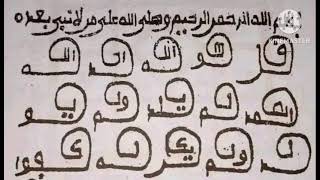 بسم الله الرحمن الرحيم وصلى الله على من لا نبي بعده
قل هو الله احد الله
الصمد لم يلد ولم يو
لد ولم يكن له كفوا
KINEMASTER